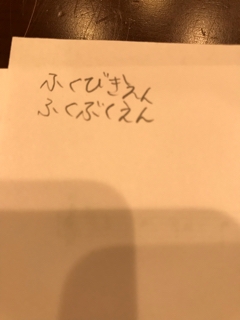 ふくびきえん
ふくぶくえん